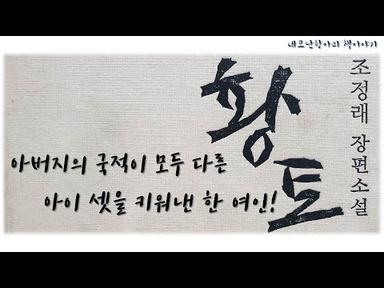 네모난항아리 책이야기
황토
조정래 장편소설
아버지의 국적이 모두 다른
아이 셋을 키워낸 한 여인!